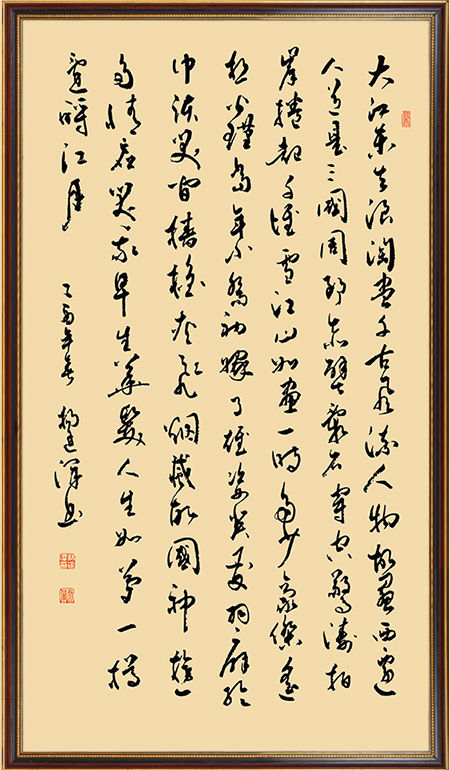 大江東去浪淘盡千古風流人物故壘西邊
人道是三國周郎赤壁亂石穿空驚濤拍
岸捲起千堆雪江山如畫一時多少豪傑遙
想公瑾當年小喬初嫁了雄姿英發羽扇綸
巾談笑間檣櫓灰飛煙滅故國神遊
多情應笑我早生華髮人生如夢一樽
還酹江月 乙酉年春 書